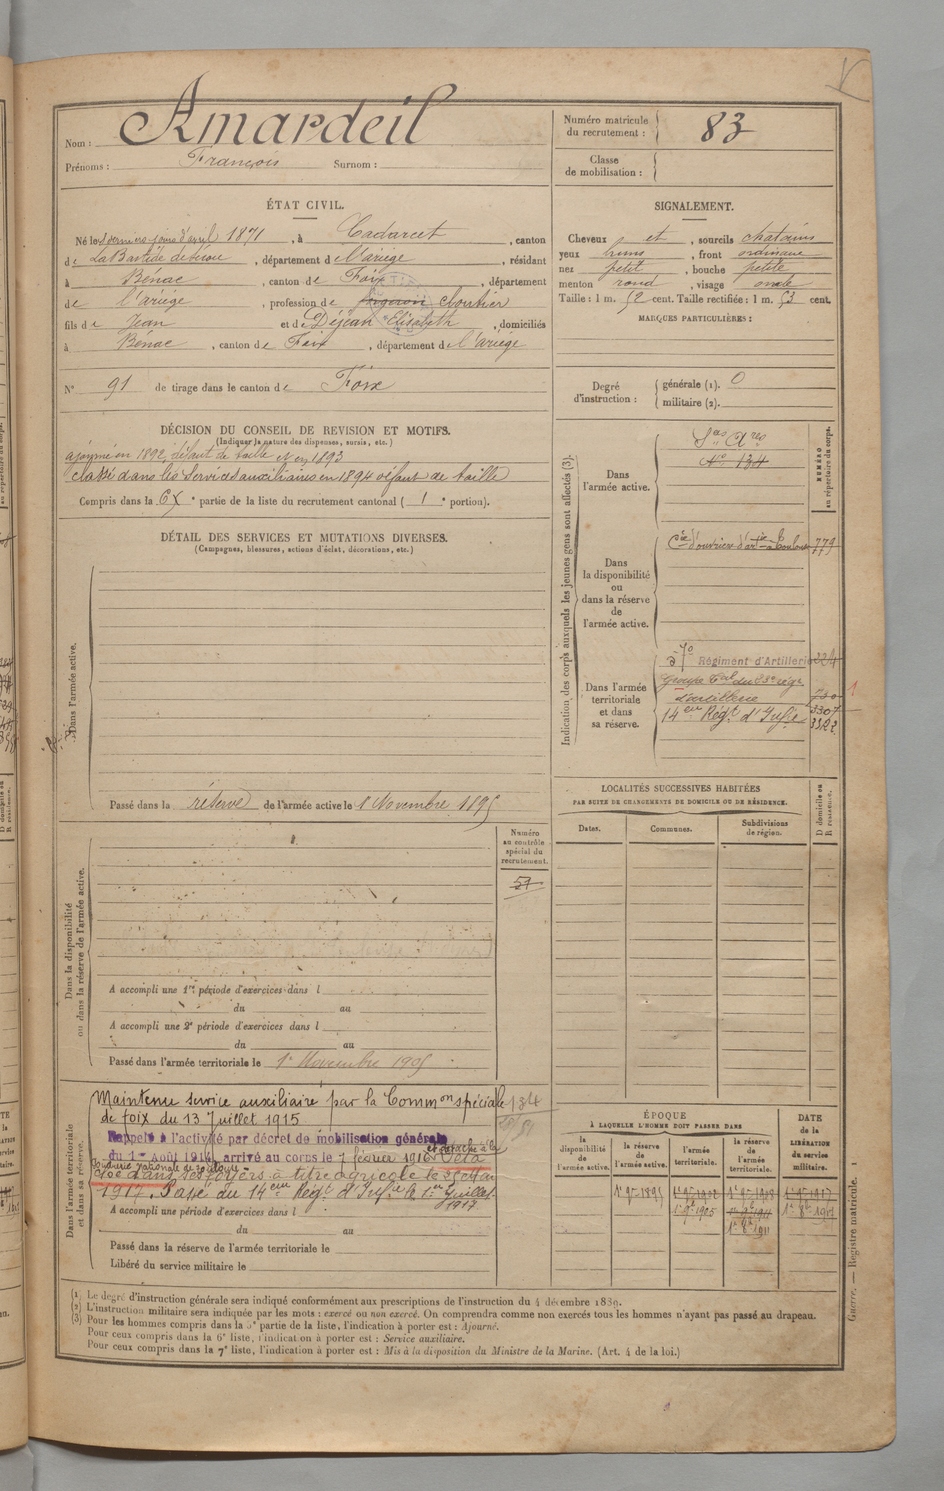 Nom : Amardeil
Prénoms : François Surnom :
Numéro matricule du recrutement : 83
Classe de mobilisation :
ÉTAT CIVIL.
Né le derniers jours d'avril 1871, à Cadarcet, canton
de La Bastide de Sérou, département de l'ariège, résidant
à Bénac, canton de Foix, département
de l'ariège, profession de forgeron cloutier
fils de Jean et de Déjean Elisabeth, domiciliés
à Bénac, canton de Foix, département de l'ariège
N° 91 de tirage dans le canton de Foix
SIGNALEMENT.
Cheveux et, sourcils chatains
yeux bruns, front ordinaire
nez petit, bouche petite
menton rond, visage ovale
Taille : 1 m. 52 cent. Taille rectifiée : 1 m. 53 cent.
MARQUES PARTICULIÈRES :
Degré d'instruction :
générale (1). 0
militaire (2).
DÉCISION DU CONSEIL DE REVISION ET MOTIFS.
(Indiquer la nature des dispenses, sursis, etc.)
ajourné en 1892, défaut de taille et en 1893
classé dans les services auxiliaires en 1894 défaut de taille
Compris dans la 6e partie de la liste du recrutement cantonal ( 1 portion).
DÉTAIL DES SERVICES ET MUTATIONS DIVERSES.
(Campagnes, blessures, actions d'éclat, décorations, etc.)
Dans l'armée active.
Passé dans la réserve de l'armée active le 1 Novembre 1895
Indication des corps auxquels les jeunes gens sont affectés (3).
NUMÉRO au répertoire du corps.
Dans l'armée active.
N° 134
Dans la disponibilité ou dans la réserve de l'armée active.
Cie d'ouvriers d'artie Toulouse 779
Dans l'armée territoriale et dans sa réserve.
Régiment d'Artillerie
Groupe Tal du 23e régt
d'artillerie
14eme Régt d'Infie 3307
Numéro au contrôle spécial du recrutement.
51
Dans la disponibilité ou dans la réserve de l'armée active.
A accompli une 1re période d'exercices dans l
du au
A accompli une 2e période d'exercices dans l
du au
Passé dans l'armée territoriale le 1er Novembre 1905
LOCALITÉS SUCCESSIVES HABITÉES
PAR SUITE DE CHANGEMENTS DE DOMICILE OU DE RÉSIDENCE.
Dates. Communes. Subdivisions de région. D domicile ou R résidence.
Dans l'armée territoriale et dans sa réserve.
Maintenu service auxiliaire par la Common spéciale 134
de foix du 13 Juillet 1915
Rappelé à l'activité par décret de mobilisation générale
du 1er Août 1914, arrivé au corps le 7 février 1916 et détaché à la
Poudrerie nationale de Toulouse
dans ses foyers à titre agricole le
1917. Passé du 14eme Régt d'Infie le 1er Juillet
1917
A accompli une période d'exercices dans l
du au
Passé dans la réserve de l'armée territoriale le
Libéré du service militaire le
ÉPOQUE
À LAQUELLE L'HOMME DOIT PASSER DANS
la disponibilité de l'armée active.
la réserve de l'armée active.
l'armée territoriale.
la réserve de l'armée territoriale.
DATE de la LIBÉRATION du service militaire.
Guerre. — Registre matricule. 1
(1) Le degré d'instruction générale sera indiqué conformément aux prescriptions de l'instruction du 4 décembre 1889.
(2) L'instruction militaire sera indiquée par les mots : exercé ou non exercé. On comprendra comme non exercés tous les hommes n'ayant pas passé au drapeau.
(3) Pour les hommes compris dans la 5e partie de la liste, l'indication à porter est : Ajourné.
Pour ceux compris dans la 6e liste, l'indication à porter est : Service auxiliaire.
Pour ceux compris dans la 7e liste, l'indication à porter est : Mis à la disposition du Ministre de la Marine. (Art. 4 de la loi.)